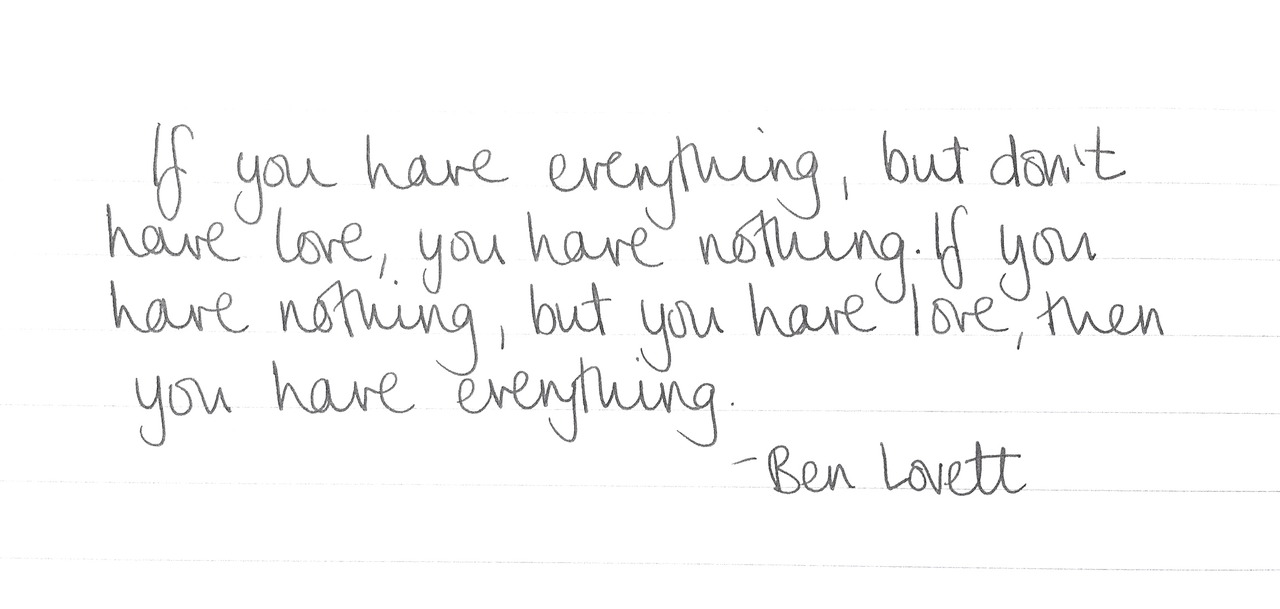 If you have everything, but don't
have love, you have nothing. If you
have nothing, but you have love, then
you have everything.
-Ben Lovett